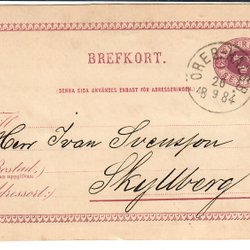 BREFKORT.
(DENNA SIDA ANVÄNDES ENBART FÖR ADRESSERINGEN.)
ÖREBRO
26
9 84
Herr Ivan Svensson
Skyllberg
Bostad.)
Adressort.)